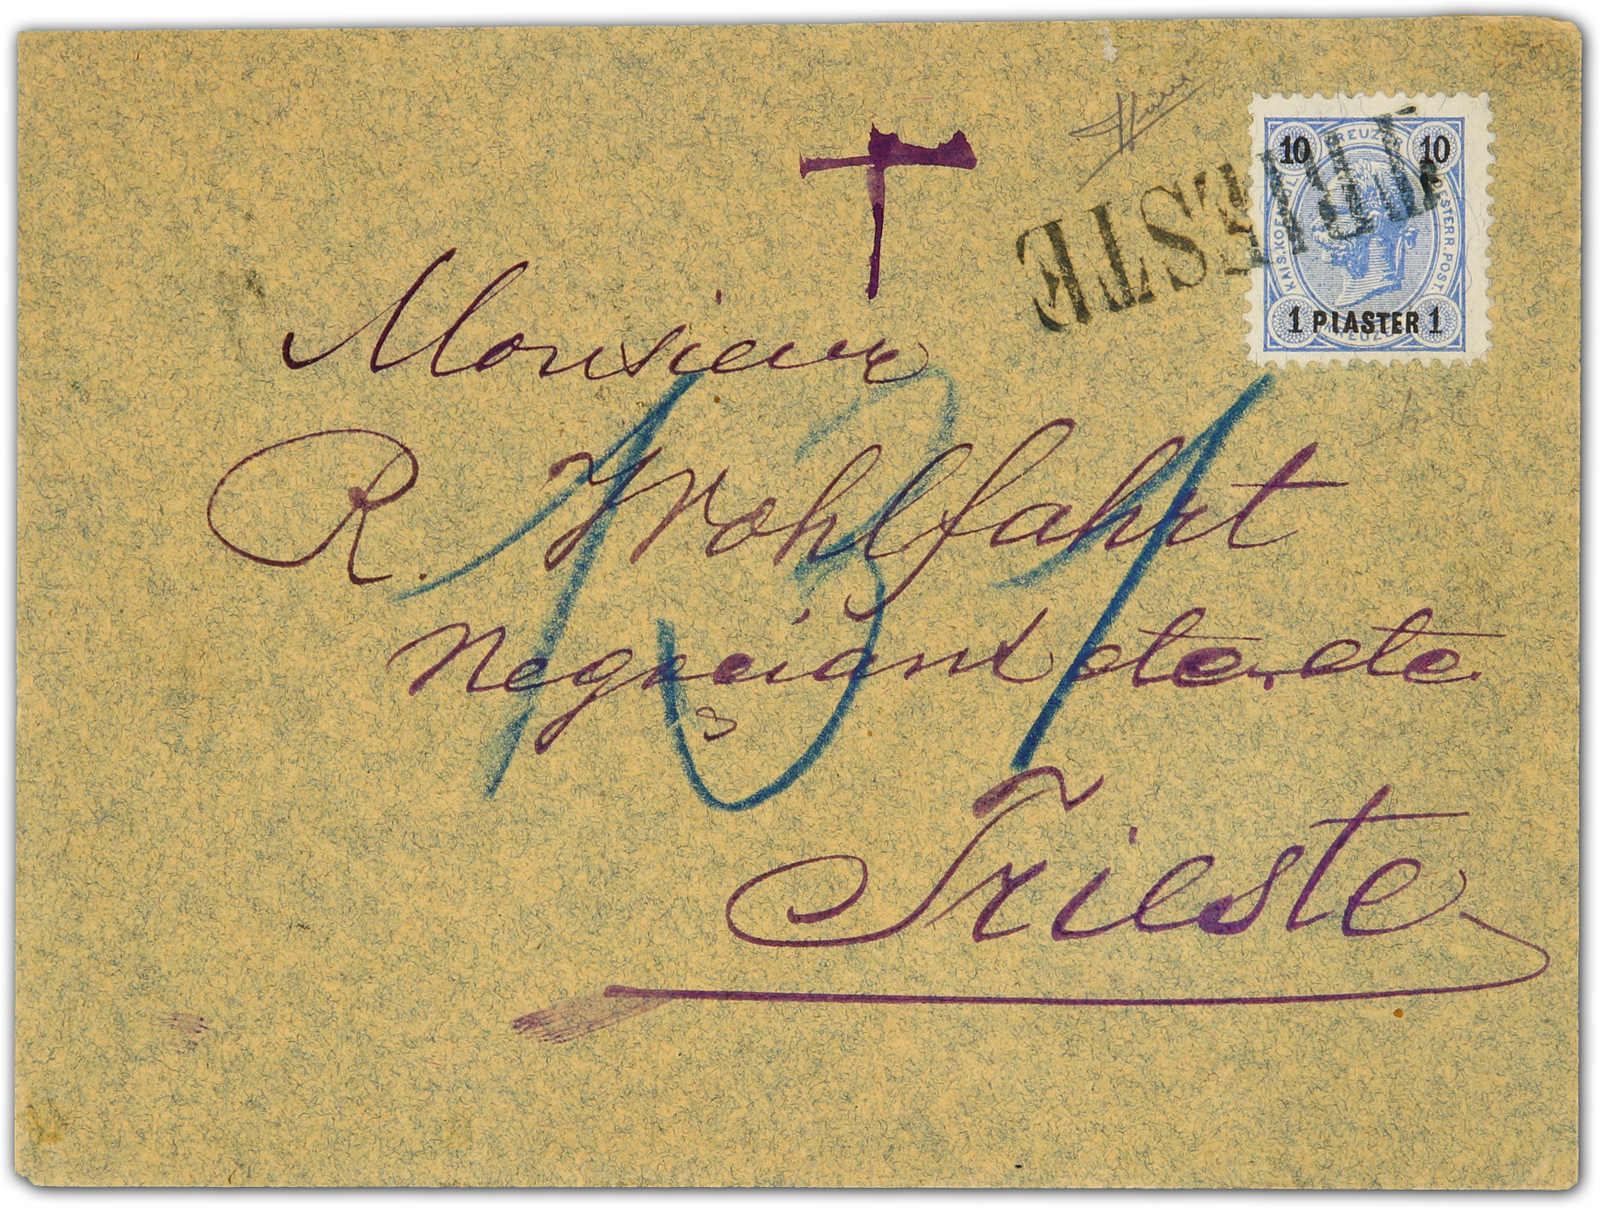 T
10 KREUZER 10
KAIS. KOENIGL. OESTERR. POST.
1 PIASTER 1
TRIESTE
Monsieur
R. Wohlfahrt
Negociant etc. etc.
3
131
Trieste